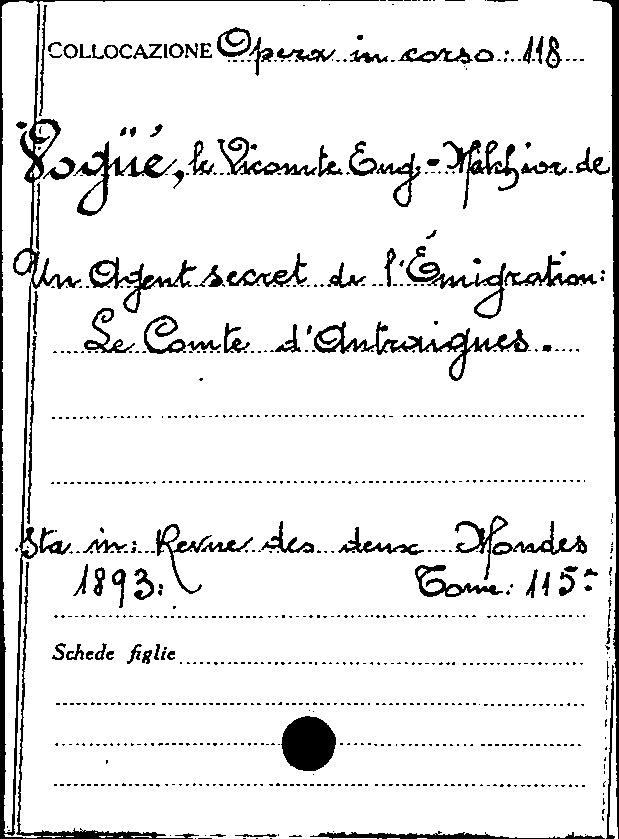 COLLOCAZIONE Opera in corso: 118
Vogüé, le Vicomte Eug.-Melchior de
Un Agent secret de l'Émigration:
Le Comte d'Antraigues.
Sta in: Revue des deux Mondes
1893. Tome: 115º
Schede figlie